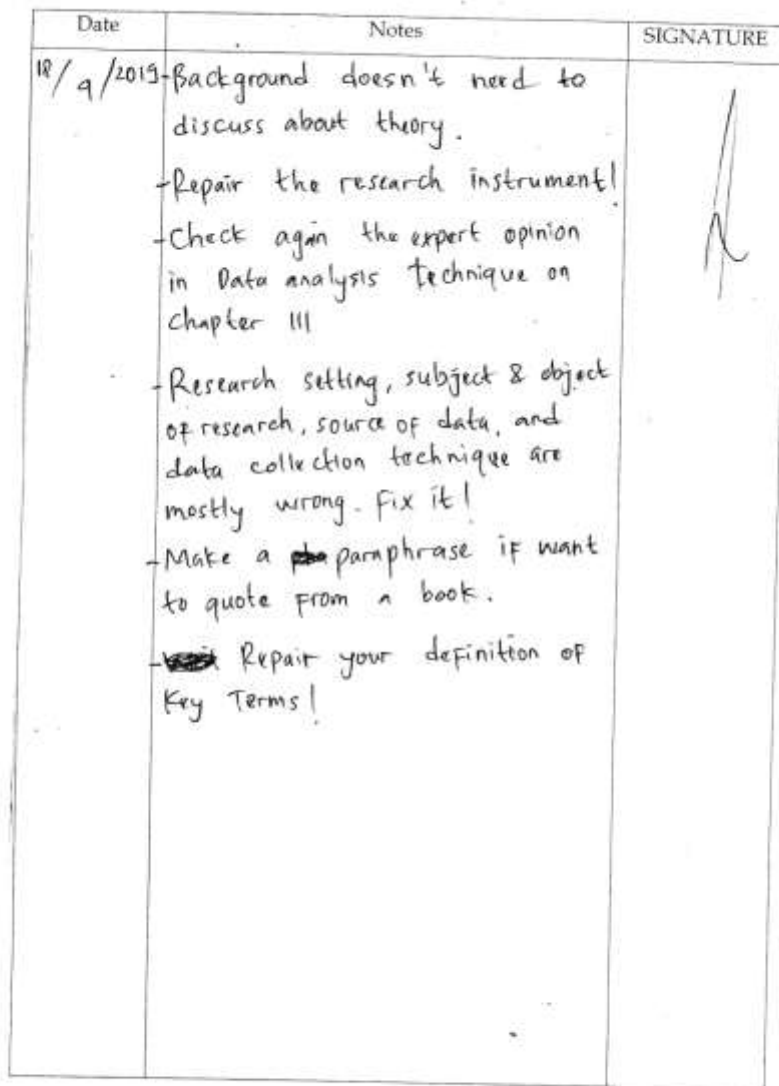 Date Notes SIGNATURE
18/9/2019 - Background doesn't need to
discuss about theory.
- Repair the research instrument!
- Check again the expert opinion
in Data analysis technique on
Chapter III
- Research setting, subject & object
of research, source of data, and
data collection technique are
mostly wrong. Fix it!
- Make a paraphrase if want
to quote from a book.
- Repair your definition of
Key Terms!